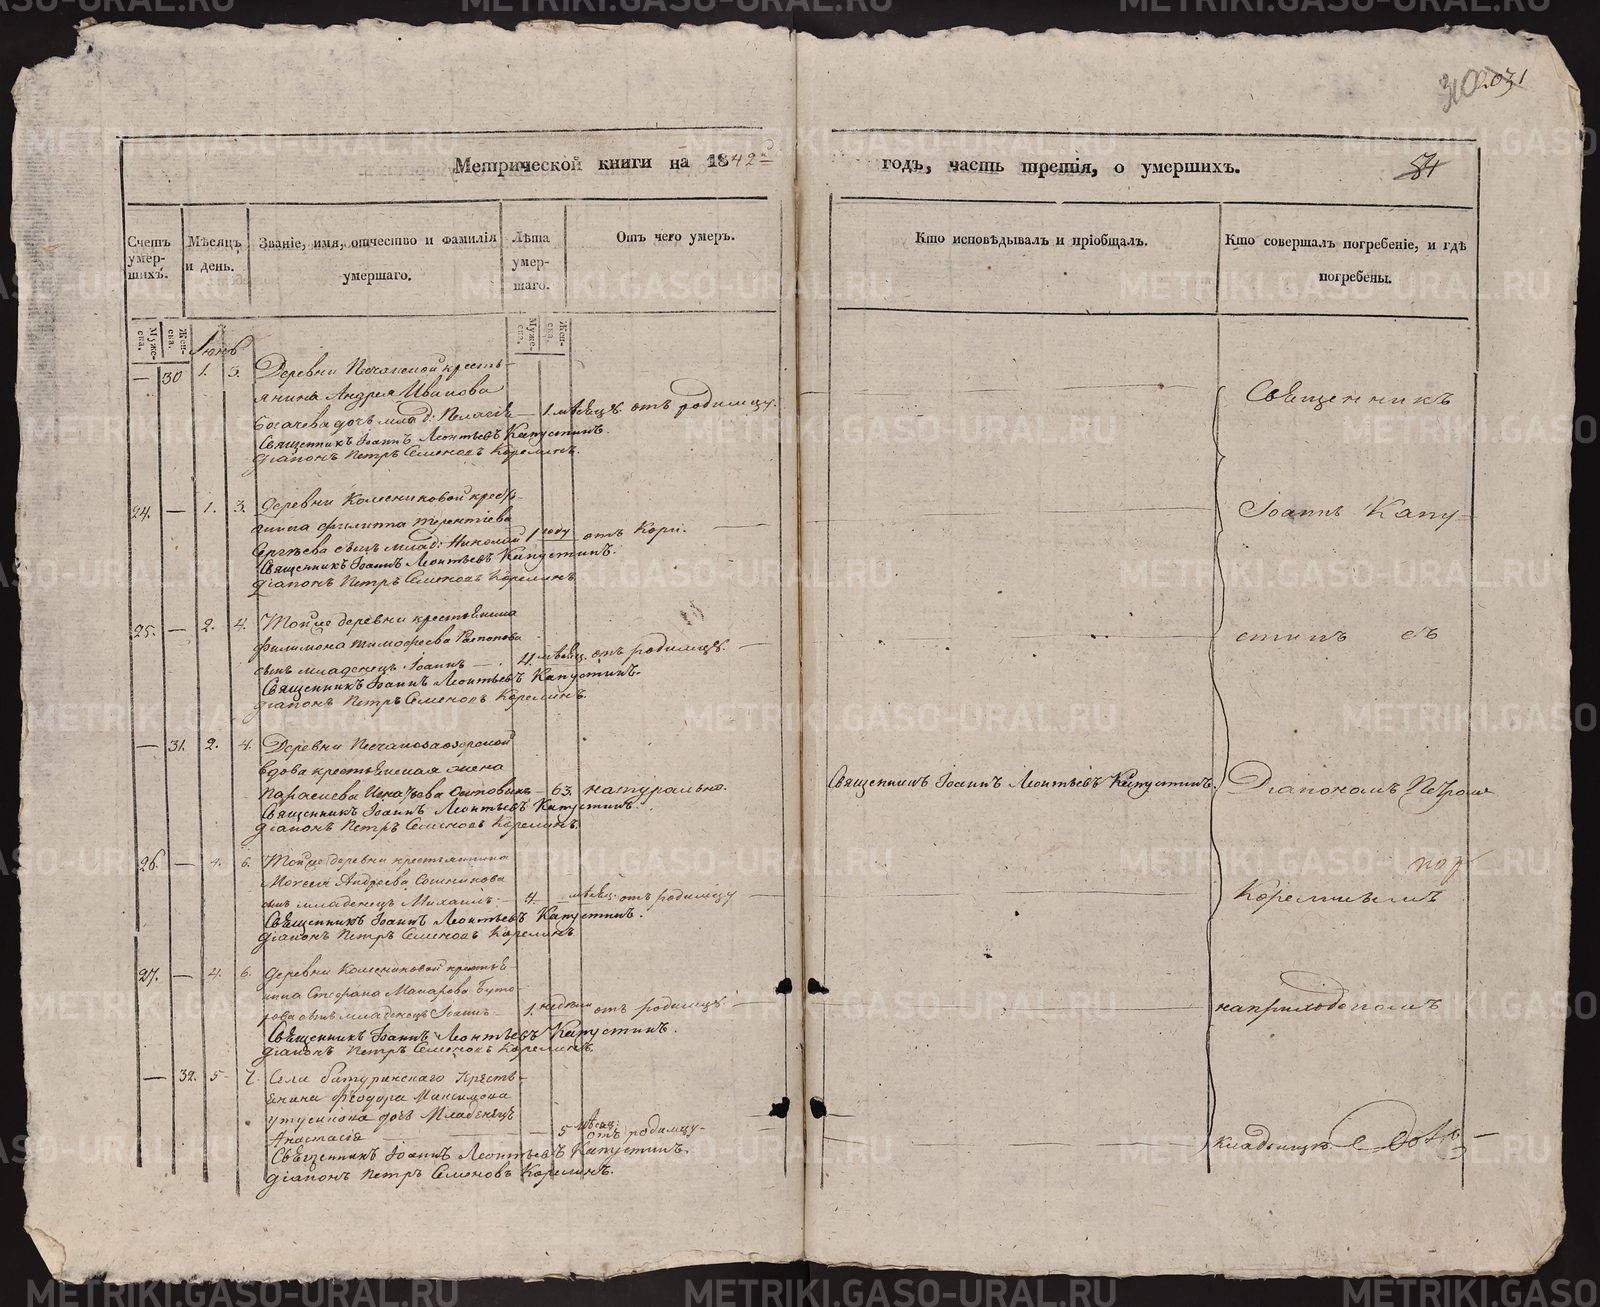 310
1031
Метрической книги на 1842й
годъ, часть третія, о умершихъ.
54
Счетъ умер-шихъ.
Мѣсяцъ и день.
Званіе, имя, отчество и фамилія умершаго.
Лѣта умер-шаго.
Отъ чего умеръ.
Кто исповѣдывалъ и пріобщалъ.
Кто совершалъ погребеніе, и гдѣ погребены.
Муже-ска.
Жен-ска.
Муже-ска.
Жен-ска.
Іюнь
— 30 1. 3. Деревни кресть-
янина Андрея Иванова
Богачева дочь млад: Пелагія — 1. мѣсяцъ отъ родимцу.
Священникъ Іоаннъ Леонтьевъ Капустинъ.
діаконъ Петръ Семеновъ Корелинъ.
24. — 1. 3. деревни Колесниковой крестья-
нина Филиппа Терентіева
Сергѣева сынъ млад: Николай 1 году отъ Кори.
Священникъ Іоаннъ Леонтьевъ Капустинъ.
діаконъ Петръ Семеновъ Корелинъ
25. — 2. 4. Той же деревни крестьянина
Филимона Тимофеева
сынъ младенецъ Іоаннъ — 4 мѣсяц. отъ родимцу.
Священникъ Іоаннъ Леонтьевъ Капустинъ.
діаконъ Петръ Семеновъ Корелинъ.
— 31. 2. 4. Деревни
вдова крестьянская жена
Параскева — 63. натурально.
Священникъ Іоаннъ Леонтьевъ Капустинъ.
діаконъ Петръ Семеновъ Корелинъ.
Священникъ Іоаннъ Леонтьевъ Капустинъ.
26. — 4. 6. Той же деревни крестьянина
Моисея Андреева Сошникова
сынъ младенецъ Михаилъ — 4 мѣсяц. отъ родимцу
Священникъ Іоаннъ Леонтьевъ Капустинъ.
діаконъ Петръ Семеновъ Корелинъ
27. — 4. 6. деревни Колесниковой крестья-
нина Стефана Макарова Буто-
рова сынъ младенецъ Іоаннъ 1. недели отъ родимца.
Священникъ Іоаннъ Леонтьевъ Капустинъ.
діаконъ Петръ Семеновъ Корелинъ.
— 32. 5 7. Села Батуринскаго кресть-
янина Феодора Максимова
дочь Младенецъ
Анастасія — 5 мѣсяц: отъ родимцу.
Священникъ Іоаннъ Леонтьевъ Капустинъ.
діаконъ Петръ Семеновъ Корелинъ.
Священникъ
Іоаннъ Капу-
стинъ съ
Діакономъ Петромъ
Корелинымъ
на приходскомъ
кладбищѣ
METRIKI.GASO-URAL.RU